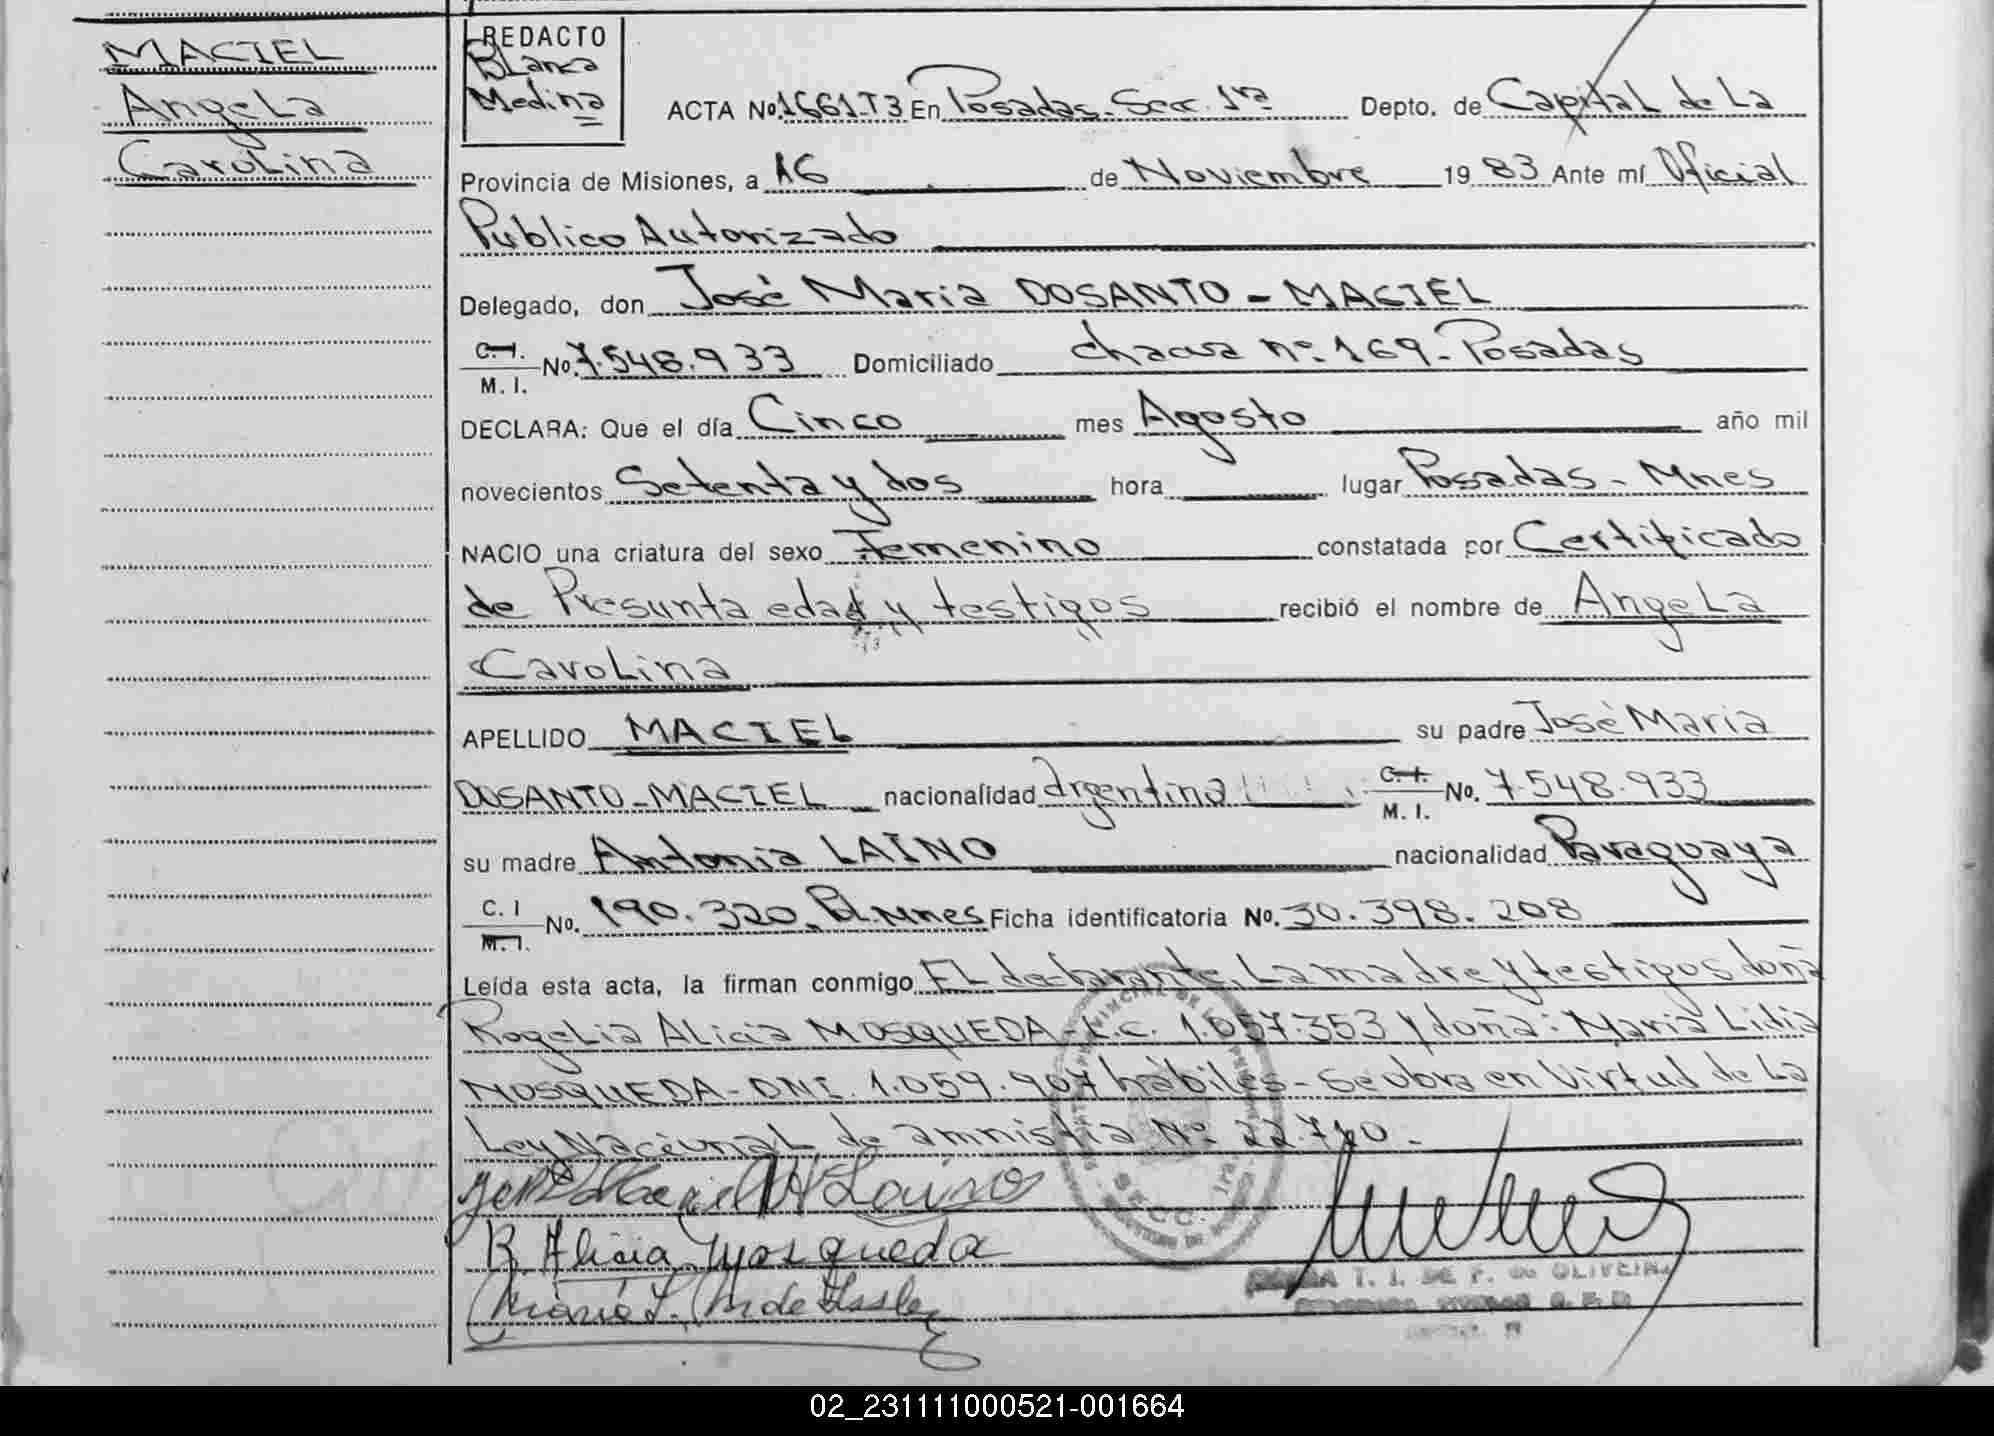 MACIEL
Angela
Carolina
REDACTO
Blanca
Medina
ACTA No. 1661-T3 En Posadas-Secc. 1ra Depto. de Capital de La
Provincia de Misiones, a 16 de Noviembre 19 83 Ante mí Oficial
Publico Autorizado
Delegado, don José Maria DOSANTO - MACIEL
C.I. M. I. No. 7.548.933 Domiciliado chacra nº 169-Posadas
DECLARA: Que el día Cinco mes Agosto año mil
novecientos Setenta y dos hora lugar Posadas - Mnes
NACIO una criatura del sexo Femenino constatada por Certificado
de Presunta edad y testigos recibió el nombre de Angela
Carolina
APELLIDO MACIEL su padre José Maria
DOSANTO-MACIEL nacionalidad argentina C.I. M. I. No. 7.548.933
su madre Antonia LAINO nacionalidad Paraguaya
C. I M. I. No. 190.320. Pol. Mnes Ficha identificatoria No. 30.398.208
Leída esta acta, la firman conmigo EL declarante, La madre y testigos doña
Rogelia Alicia MOSQUEDA L.C. 1.057.353 y doña: Maria Lidia
MOSQUEDA-DNI. 1.059.907 habiles-Se obra en Virtud de La
Ley Nacional de amnistia Nº 22.710.
Laino
R Alicia Mosqueda
Maria L. M de
SECC. 1ra.
T. I. DE F. de OLIVEIRA
02_231111000521-001664